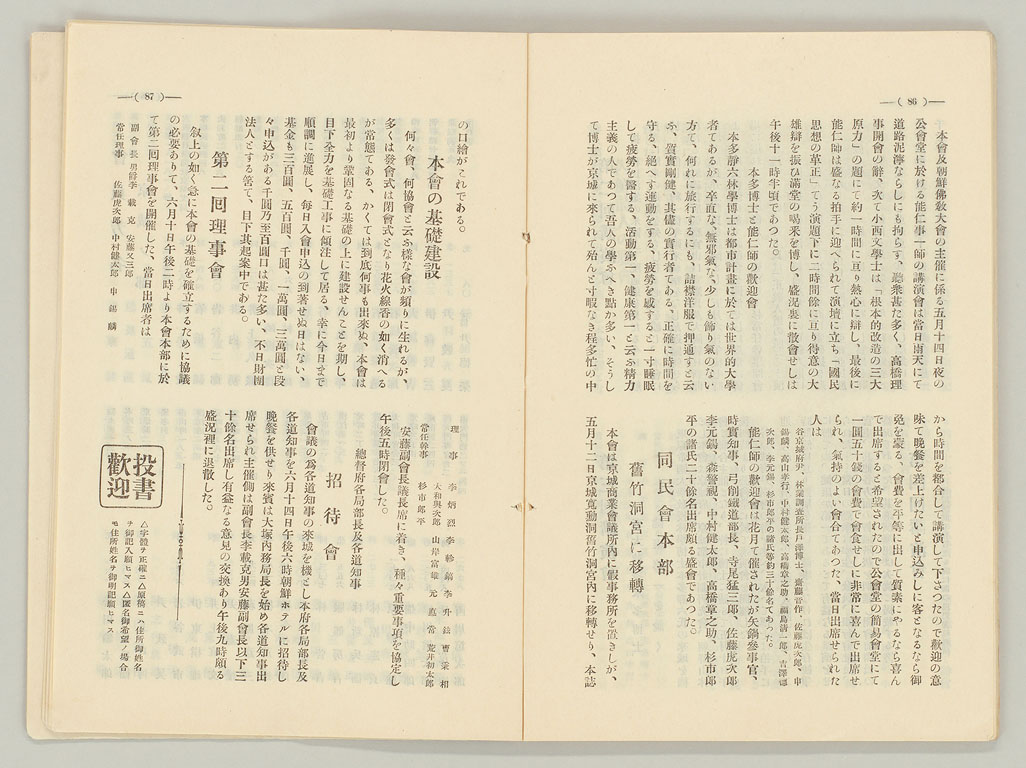 —( 86 )—
本會及朝鮮佛敎大會の主催に係る五月十四日夜の
公會堂に於ける能仁事一師の講演會は當日雨天にて
道路泥濘ならしにも拘らず、聽衆甚た多く、高橋理
事開會の辭、次て小西文學士は「根本的改造の三大
原力」の題にて約一時間に亘り熱心に辯し、最後に
能仁師は盛なる拍手に迎へられて演壇に立ち「國民
思想の革正」てう演題下に二時間餘に亘り得意の大
雄辯を振ひ滿堂の喝采を博し、盛況裏に散會せしは
午後十一時半頃であつた。
本多博士と能仁師の歡迎會
本多靜六林學博士は都市計畫に於ては世界的大學
者てあるが、卒直な、無邪氣な、少しも飾り氣のない
方て、何れに旅行するにも、詰襟洋服で押通すと云
ふ、質實剛健、其儘の實行者である、正確に時間を
守る、絕へす運動をする、疲勞を感すると一寸睡眠
して疲勞を醫する、活動第一、健康第一と云ふ精力
主義の人であつて吾人の學ふへき點か多い、そうし
て博士が京城に來られて殆んと寸暇なき程多忙の中
から時間を都合して講演して下さつたので歡迎の意
味て晩餐を差上げたいと申込みしに客となるなら御
免を蒙る、會費を平等に出して質素にやるなら喜ん
で出席すると希望されたので公會堂の簡易會堂にて
一圓五十錢の會費で會食せしに非常に喜んで出席せ
られ、氣持のよい會合てあつた、當日出席せられた
人は
谷京城府尹、林業調査所長戸澤博士、齋藤音作、佐藤虎次郎、申
錫麟、高山孝行、中村健太郎、高橋章之助、福島淸一郎、吉澤諦
次郎、李元錫、杉市郎平の諸氏等約三十餘名てあつた。
能仁師の歡迎會は花月て催されたが矢鍋參事官、
時實知事、弓削鐵道部長、寺尾猛三郎、佐藤虎次郎
李元錫、森警視、中村健太郎、高橋章之助、杉市郎
平の諸氏二十餘名出席頗る盛會であつた。
同民會本部
舊竹洞宮に移轉
本會は京城商業會議所內に假事務所を置きしが、
五月十二日京城寬勳洞舊竹洞宮內に移轉せり、本誌
—( 87 )—
の口繪がこれである。
本會の基礎建設
何々會、何協會と云ふ樣な會が頻りに生れるが
多くは發會式は閉會式となり花火線香の如く消へる
が常態てある、かくては到底何事も出來ぬ、本會は
最初より鞏固なる基礎の上に建設せんことを期し、
目下全力を基礎工事に傾注して居る、幸に今日まで
順調に進展し、每日入會申込の到著せぬ日はない、
基金も三百圓、五百圓、千圓、一萬圓、三萬圓と段
々申込がある千圓乃至百圓口は甚た多い、不日財團
法人とする筈て、目下其起案中である。
第二回理事會
叙上の如く急に本會の基礎を確立するために協議
の必要ありて、六月十日午後二時より本會本部に於
て第二回理事會を開催した、當日出席者は
副會長 男爵 李載克 安藤又三郎
常任理事 佐藤虎次郎 中村健太郎 申錫麟
理事 李炳烈 李軫鎬 李升鉉 曹秉相
常任幹事 大和與次郎 山岸富雄 元悳常 荒井初太郎
杉市郎平
安藤副會長議長席に着き、種々重要事項を協定し
午後五時閉會した。
總督府各局部長及各道知事
招待會
會議の爲各道知事の來城を機とし本府各局部長及
各道知事を六月十四日午後六時朝鮮ホテルに招待し
晩餐を供せり來賓は大塚內務局長を始め各道知事出
席せられ主催側は副會長李載克男安藤副會長以下三
十餘名出席し有益なる意見の交換あり午後九時頗る
盛況裡に退散した。
投書
歡迎
△字體ヲ正確ニ△原稿ニハ住所御姓名
ヲ御記入願ヒマス△匿名御希望ノ場合
モ住所姓名ヲ御明記願ヒマス